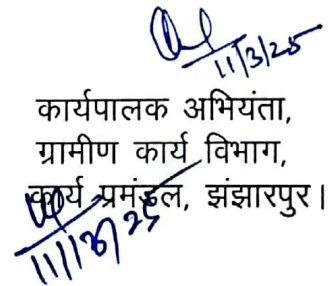 11/3/25
कार्यपालक अभियंता,
ग्रामीण कार्य विभाग,
कार्य प्रमंडल, झंझारपुर।